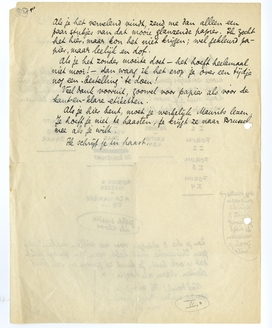 Als je het vervelend vindt, zend me dan alleen een
paar stukjes van dat mooie glanzende papier. Ik zocht
het hier, maar kon het niet krijgen; wel gekleurd pa-
pier, maar leelijk en dof.
Als je het zonde, moeite doet — het hoeft heelemaal
niet mooi! — dan waag ik het erop je over een tijdje
nog een „bestelling" te doen!
Veel dank vooruit, zoowel voor papier als voor de
kant-en-klare etiketten.
Als je hier bent, moet je werkelijk Maurits lezen,
je hoeft niet te haasten, je krijgt ze naar Brummen
mee als je wilt.
Ik schrijf je in haast.